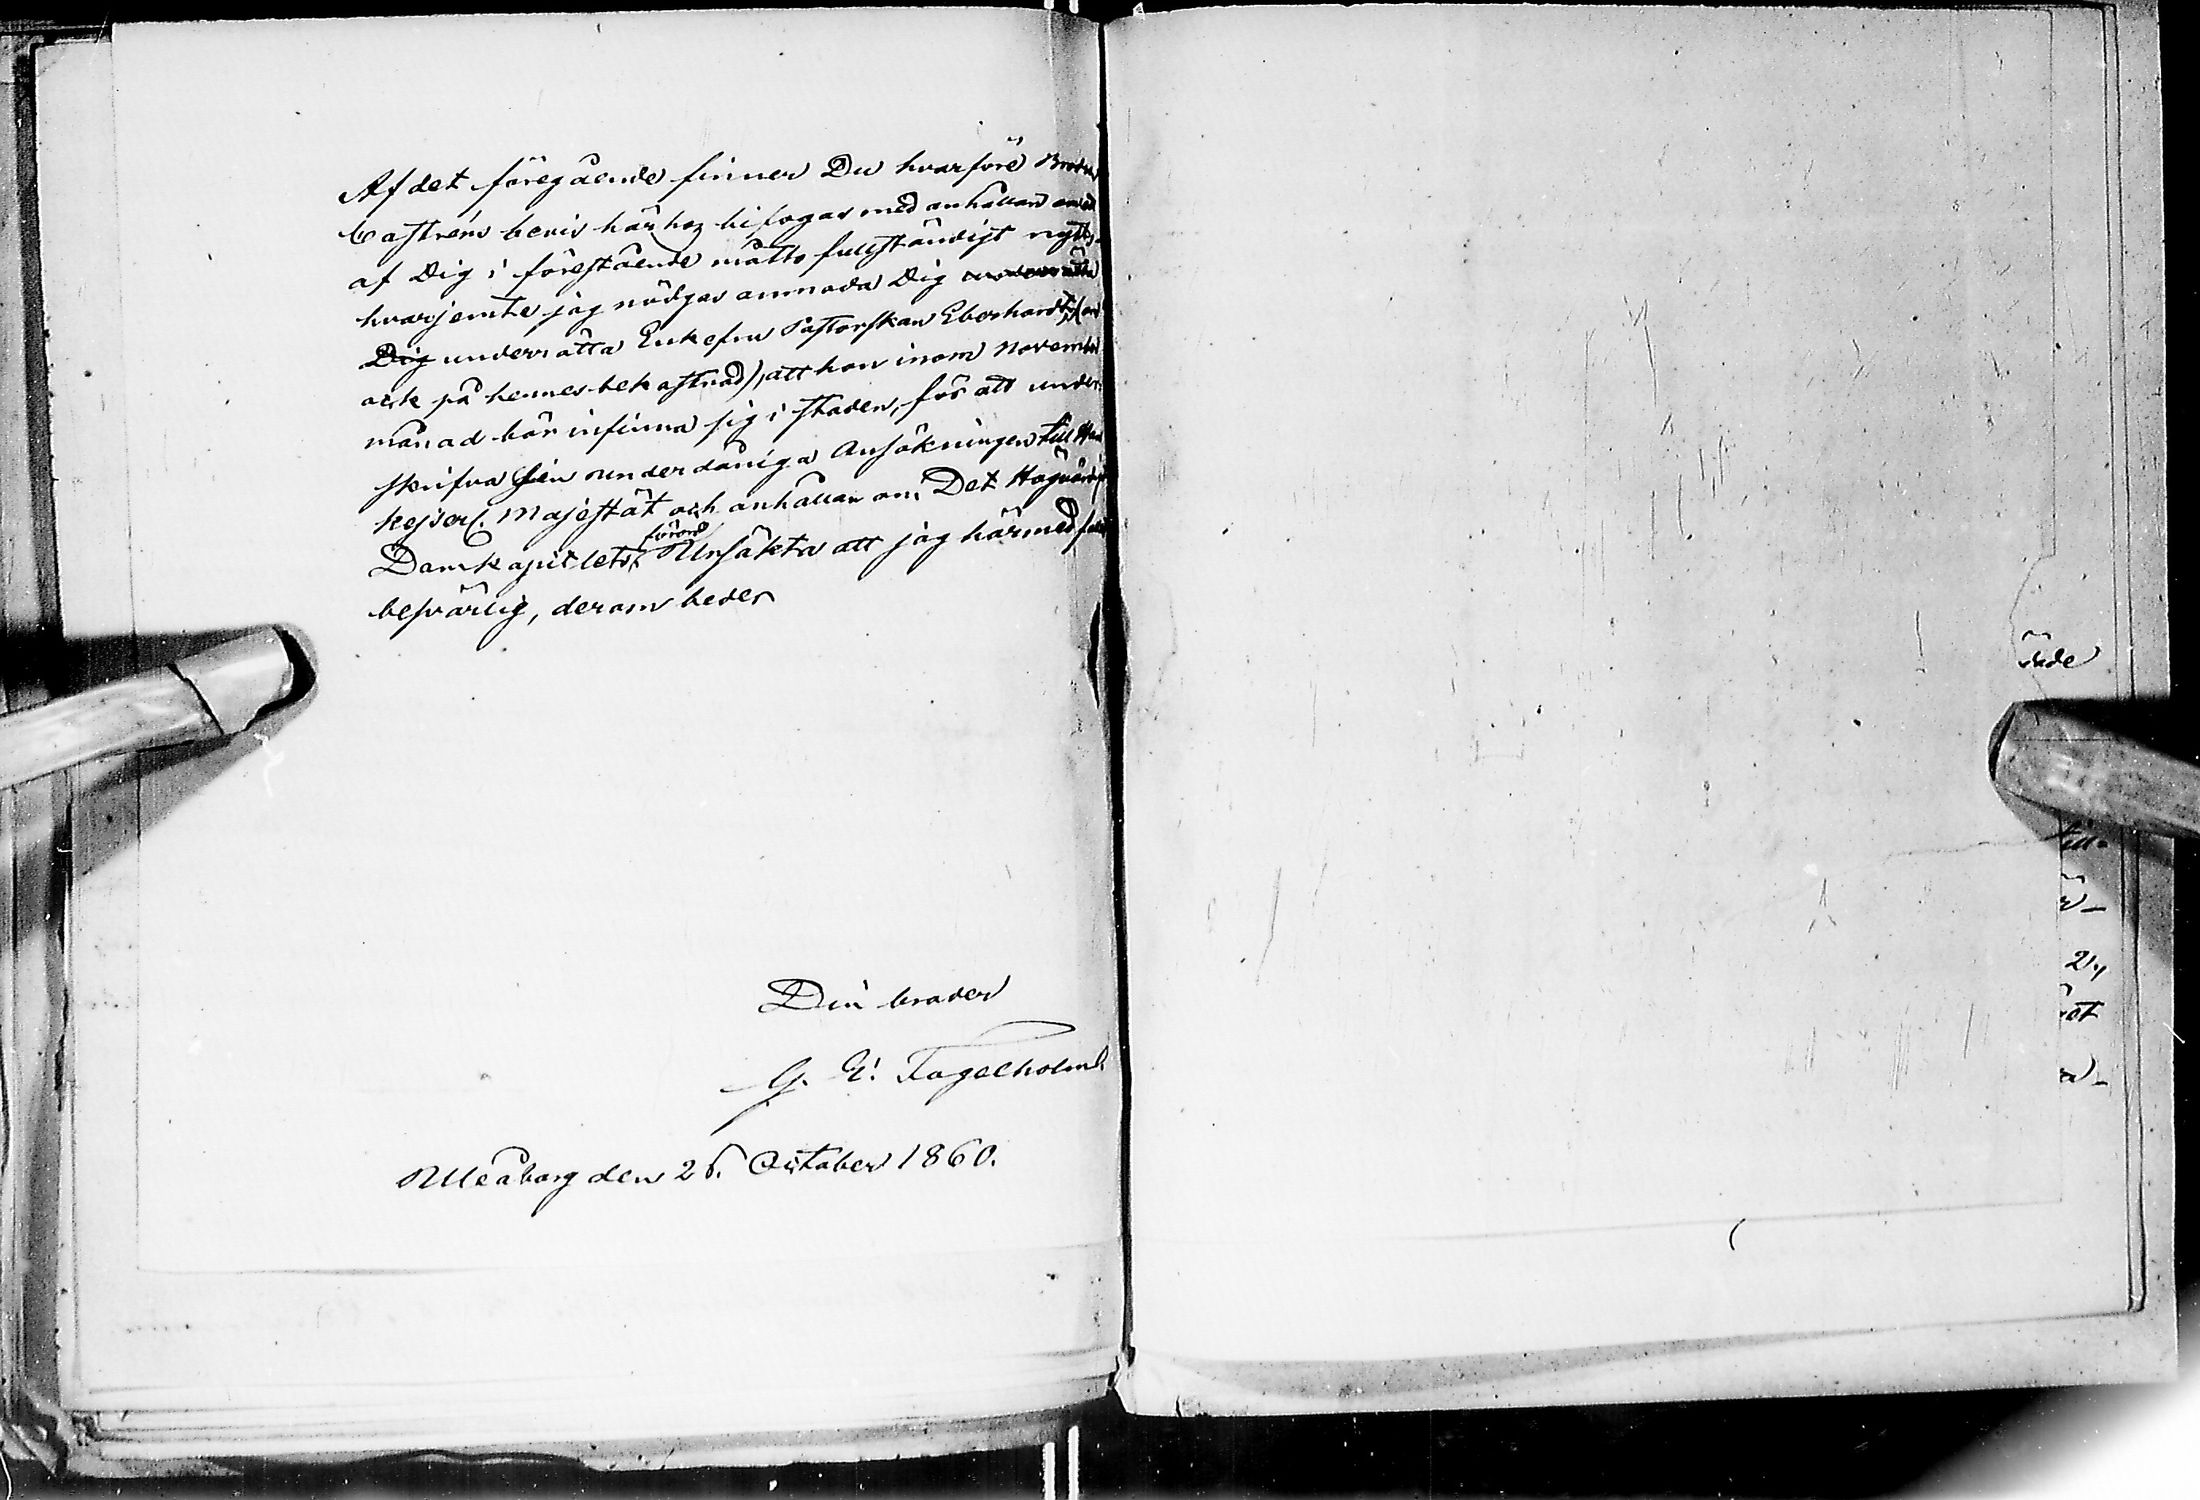 Af det föregående finner Du hvarföre Broder
Castréns bevis härhoz bifogas med anhållan
af Dig i förestående måtto fullständigt nytt,
hvarjemte jag nödgas anmoda Dig underrätta
Dig underrätta Enkefru Pastorskan Eberhardt,
ock på hennes bekostnad), att hon inom November
månad bör infinna sig i staden, för att under-
skrifva sin underdåniga Ansökningen till
Kejserl. Majestät och anhållan om Det Högvördig
förord
Domkapitlets. Ursäkta att jag härmed
besvärlig, derom beder
Din broder
G. E. Fogelholm
Uleåborg den 26. October 1860.
till-
2,